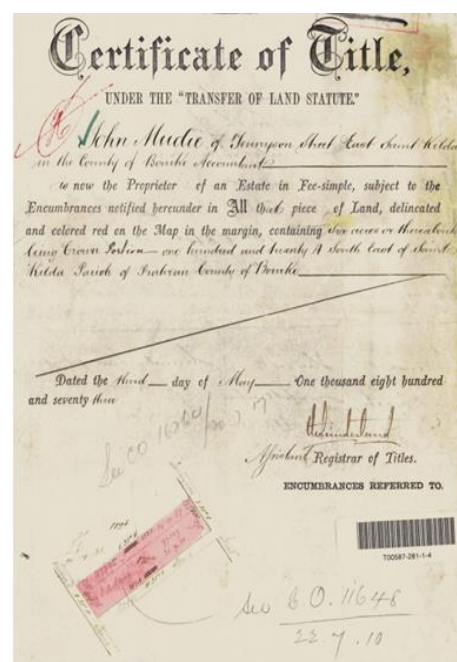 Certificate of Title,
UNDER THE "TRANSFER OF LAND STATUTE."
John Mudie of Tennyson Street East Saint Kilda
in the County of Bourke Accountant
is now the Proprietor of an Estate in Fee-simple, subject to the
Encumbrances notified hereunder in All that piece of Land, delineated
and colored red on the Map in the margin, containing Six acres or thereabouts
being Crown Portion one hundred and twenty A South East of Saint
Kilda Parish of Prahran County of Bourke
Dated the third day of May One thousand eight hundred
and seventy three
See CO
Assistant Registrar of Titles.
ENCUMBRANCES REFERRED TO.
T00587-281-1-4
See CO. 11648
22.7.10